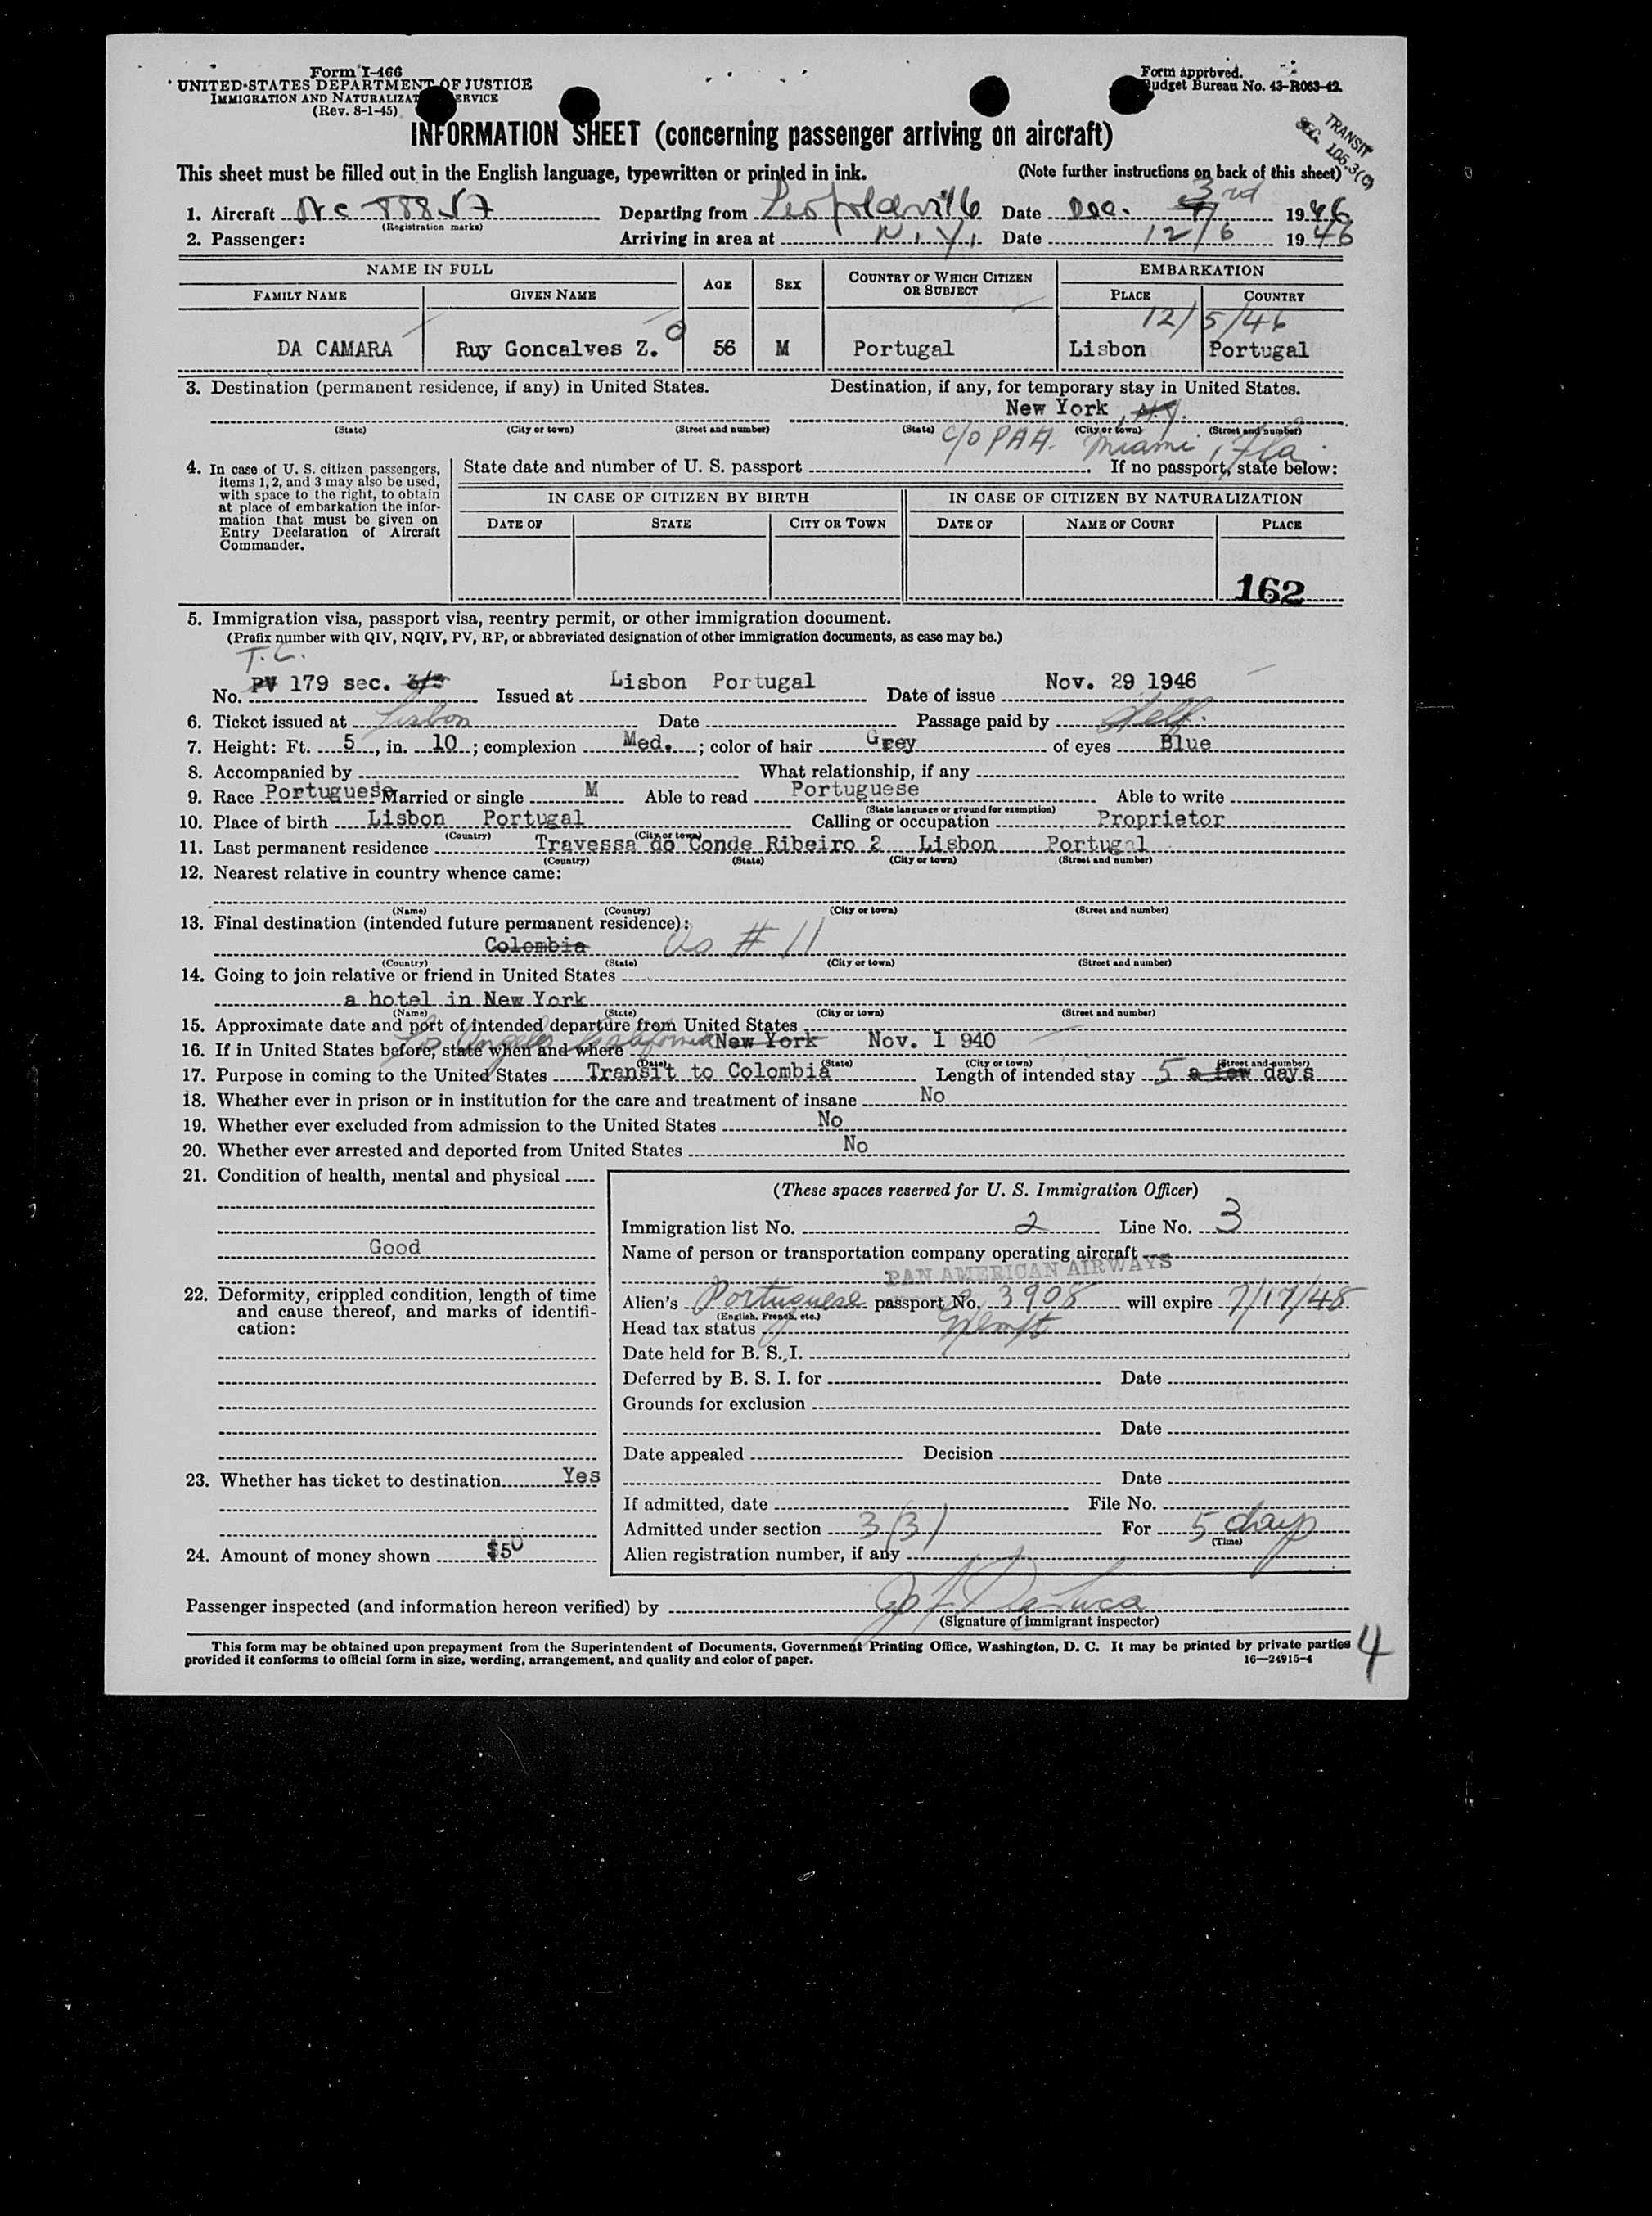 Form I-466
UNITED STATES DEPARTMENT OF JUSTICE
IMMIGRATION AND NATURALIZAT ERVICE
(Rev. 8-1-45)
Form approved.
Budget Bureau No. 43-R063-42.
TRANSIT
SEC. 105.3(C)
INFORMATION SHEET (concerning passenger arriving on aircraft)
This sheet must be filled out in the English language, typewritten or printed in ink. (Note further instructions on back of this sheet)
1. Aircraft Nc 88857 Departing from Leopoldville Date Dec. 3rd 1946
(Registration marks)
2. Passenger: Arriving in area at N.Y. Date 12/6 1946
NAME IN FULL AGE SEX COUNTRY OF WHICH CITIZEN OR SUBJECT EMBARKATION
FAMILY NAME GIVEN NAME PLACE COUNTRY
12/5/46
DA CAMARA Ruy Goncalves Z. 56 M Portugal Lisbon Portugal
3. Destination (permanent residence, if any) in United States. Destination, if any, for temporary stay in United States.
New York, N.Y.
(State) (City or town) (Street and number) (State) (City or town) (Street and number)
c/o PAA. Miami, Fla.
4. In case of U. S. citizen passengers, items 1, 2, and 3 may also be used, with space to the right, to obtain at place of embarkation the information that must be given on Entry Declaration of Aircraft Commander.
State date and number of U. S. passport If no passport, state below:
IN CASE OF CITIZEN BY BIRTH IN CASE OF CITIZEN BY NATURALIZATION
DATE OF STATE CITY OR TOWN DATE OF NAME OF COURT PLACE
162
5. Immigration visa, passport visa, reentry permit, or other immigration document.
(Prefix number with QIV, NQIV, PV, RP, or abbreviated designation of other immigration documents, as case may be.)
T.C.
No. PV 179 sec. Issued at Lisbon Portugal Date of issue Nov. 29 1946
6. Ticket issued at Lisbon Date Passage paid by Self.
7. Height: Ft. 5, in. 10; complexion Med.; color of hair Grey of eyes Blue
8. Accompanied by What relationship, if any
9. Race Portuguese Married or single M Able to read Portuguese Able to write
(State language or ground for exemption)
10. Place of birth Lisbon Portugal Calling or occupation Proprietor
(Country) (City or town)
11. Last permanent residence Travessa do Conde Ribeiro 2 Lisbon Portugal
(Country) (State) (City or town) (Street and number)
12. Nearest relative in country whence came:
(Name) (Country) (City or town) (Street and number)
13. Final destination (intended future permanent residence):
Colombia As # 11
(Country) (State) (City or town) (Street and number)
14. Going to join relative or friend in United States
a hotel in New York
(Name) (State) (City or town) (Street and number)
15. Approximate date and port of intended departure from United States
16. If in United States before, state when and where Los Angeles California New York Nov. 1 940
(Date) (State) (City or town) (Street and number)
17. Purpose in coming to the United States Transit to Colombia Length of intended stay 5 a few days
18. Whether ever in prison or in institution for the care and treatment of insane No
19. Whether ever excluded from admission to the United States No
20. Whether ever arrested and deported from United States No
21. Condition of health, mental and physical
Good
22. Deformity, crippled condition, length of time and cause thereof, and marks of identification:
23. Whether has ticket to destination Yes
24. Amount of money shown $50
(These spaces reserved for U. S. Immigration Officer)
Immigration list No. 2 Line No. 3
Name of person or transportation company operating aircraft
PAN AMERICAN AIRWAYS
Alien's Portuguese passport No. 3908 will expire 7/17/48
(English, French, etc.)
Head tax status Exempt
Date held for B. S. I.
Deferred by B. S. I. for Date
Grounds for exclusion
Date
Date appealed Decision
Date
If admitted, date File No.
Admitted under section 3(3) For 5 days
(Time)
Alien registration number, if any
Passenger inspected (and information hereon verified) by DeLuca
(Signature of immigrant inspector)
This form may be obtained upon prepayment from the Superintendent of Documents, Government Printing Office, Washington, D. C. It may be printed by private parties
provided it conforms to official form in size, wording, arrangement, and quality and color of paper. 16—24915-4
4